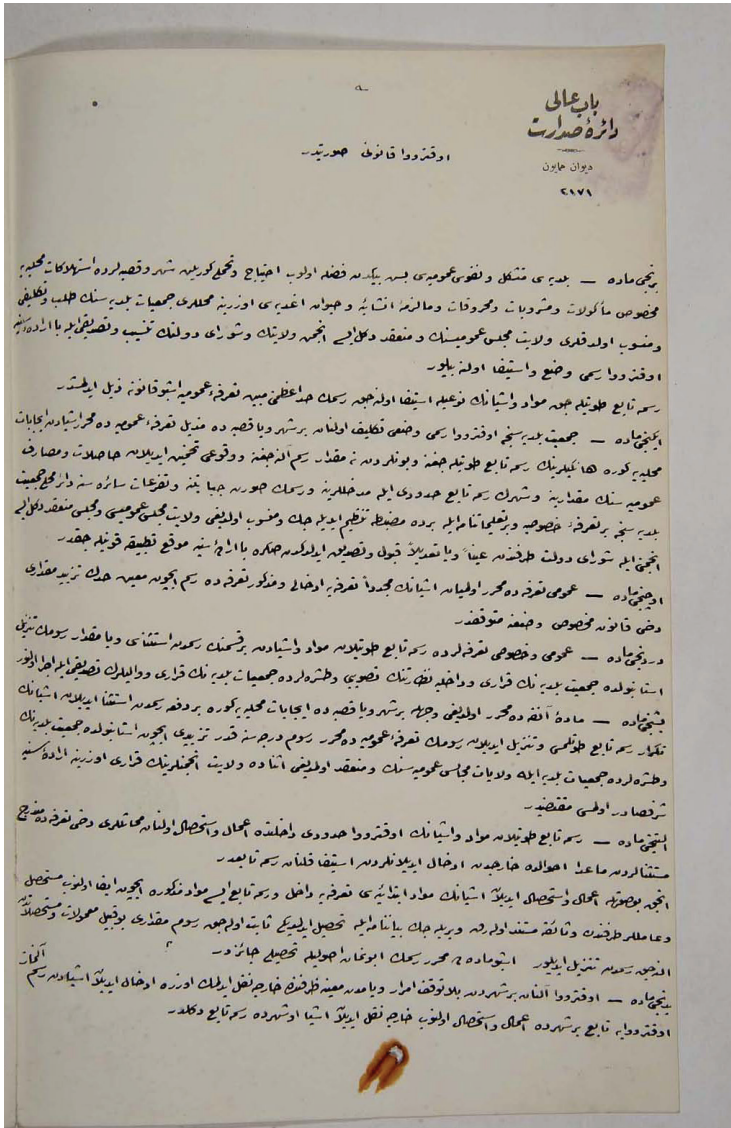 باب عالی
دائرۀ صدارت
دیوان همایون
٢١٧١
اوقترووا قانونی صورتیدر
برنجی ماده — بلدیه‌سی متشکل و نفوس عمومیه‌سی بش بیكدن فضله اولوب احتیاج و تحملی كوریلن شهر و قصبه‌لرده استهلاكات محلیه‌یه
مخصوص مأكولات و مشروبات و محروقات و مالزمۀ انشائیه و حیوان اغدیه‌سی اوزرینه محللری جمعیات بلدیه‌سنك طلب و تكلیفی
و منسوب اولدقلری ولایت مجلس عمومیسنك و منعقد دكل ایسه انجمن ولایتك و شورای دولتك تنسیب و تصدیقی ایله بااراده سنیه
اوقترووا رسمی وضع و استیفا اولنه بیلور
رسمه تابع طوتیله‌جق مواد و اشیانك نوعیله استیفا اولنه‌جق رسمك حد اعظمنی مبین تعرفۀ عمومیه اشبو قانونه ذیل ایدلمشدر
ایكنجی ماده — جمعیت بلدیه‌سنجه اوقترووا رسمی وضعی تكلیف اولنان بر شهر ویا قصبه‌ده مذیل تعرفۀ عمومیه‌ده محرر اشیادن ایجابات
محلیه‌یه كوره هانكیلرینك رسمه تابع طوتیله‌جغنه و بونلردن نه مقدار رسم آلنه‌جغنه و وقوعی تخمین ایدیلان حاصلات و مصارف
عمومیه‌سنك مقدارینه و شهرك رسمه تابع حدودی ایله مدخللرینه و رسمك صورت جبایتنه و تفرعات سائره‌سنه دائر محلی جمعیت
بلدیه‌سنجه بر تعرفۀ خصوصیه و بر تعلیماتنامه ایله برده مضبطه تنظیم ایدیله‌جك و منسوب اولدیغی ولایت مجلس عمومیسی و مجلس منعقد دكل ایسه
انجمنی ایله شورای دولت طرفندن عیناً ویا تعدیلاً قبول و تصدیق ایدلدكدن صكره بااراده سنیه موقع تطبیقه قونیله‌جقدر
اوچنجی ماده — عمومی تعرفه‌ده محرر اولمیان اشیانك مجدداً تعرفه‌یه ادخالی و مذكور تعرفه‌ده رسم ایچون معین حدك تزیید مقداری
دخی قانون مخصوص وضعنه متوقفدر
دردنجی ماده — عمومی و خصوصی تعرفه‌لرده رسمه تابع طوتیلان مواد و اشیادن بر قسمنك رسمدن استثناسی ویا مقدار رسومك تنزیلی
استانبولده جمعیت بلدیه‌نك قراری و داخلیه نظارتنك تصویبی و طشره‌لرده جمعیات بلدیه‌نك قراری و والیلرك تصدیقی ایله اجرا اولنور
بشنجی ماده — مادۀ آنفه‌ده محرر اولدیغی وجهله بر شهر ویا قصبه‌ده ایجابات محلیه‌یه كوره بر دفعه رسمدن استثنا ایدیلان اشیانك
تكرار رسمه تابع طوتلمسی و تنزیل ایدیلان رسومك تعرفۀ عمومیه‌ده محرر رسوم درجه‌سنه قدر تزییدی ایچون استانبولده جمعیت بلدیه‌نك
و طشره‌لرده جمعیات بلدیه ایله ولایات مجالس عمومیه‌سنك و منعقد اولمدیغی اثناده ولایت انجمنلرینك قراری اوزرینه ارادۀ سنیه
شرفصادر اولمسی مقتضیدر
التنجی ماده — رسمه تابع طوتیلان مواد و اشیانك اوقترووا حدودی داخلنده اعمال و استحصال اولنان مماثللری دخی تعرفه‌ده مندرج
مستثنالردن ماعدا احوالده خارجدن ادخال ایدیلانلردن استیفا قلنان رسمه تابعدر
انجق بوصورتله اعمال و استحصال ایدیلان اشیانك مواد ابتدائیه‌سی تعرفه‌یه داخل و رسمه تابع ایسه مواد مذكوره ایچون ایفا اولنوب مستحصل
و عامللر طرفندن وثائقه مستند اوله‌رق ویریله‌جك بیاننامه ایله تحصیل ایدلدیكی ثابت اوله‌جق رسوم مقداری بوقبیل معمولات و مستحصلاتدن
النه‌جق رسمدن تنزیل ایدیلور اشبو ماده‌ده محرر رسمك ابونمان اصولیله تحصیلی جائزدر
یدنجی ماده — اوقترووا آلنان بر شهردن بلا توقف امرار ویا مدت معینه ظرفنده خارجه نقل ایدلمك اوزره ادخال ایدیلان اشیادن رسم آلنماز
اوقتروویه تابع بر شهرده اعمال و استحصال اولنوب خارجه نقل ایدیلان اشیا اوشهرده رسمه تابع دكلدر